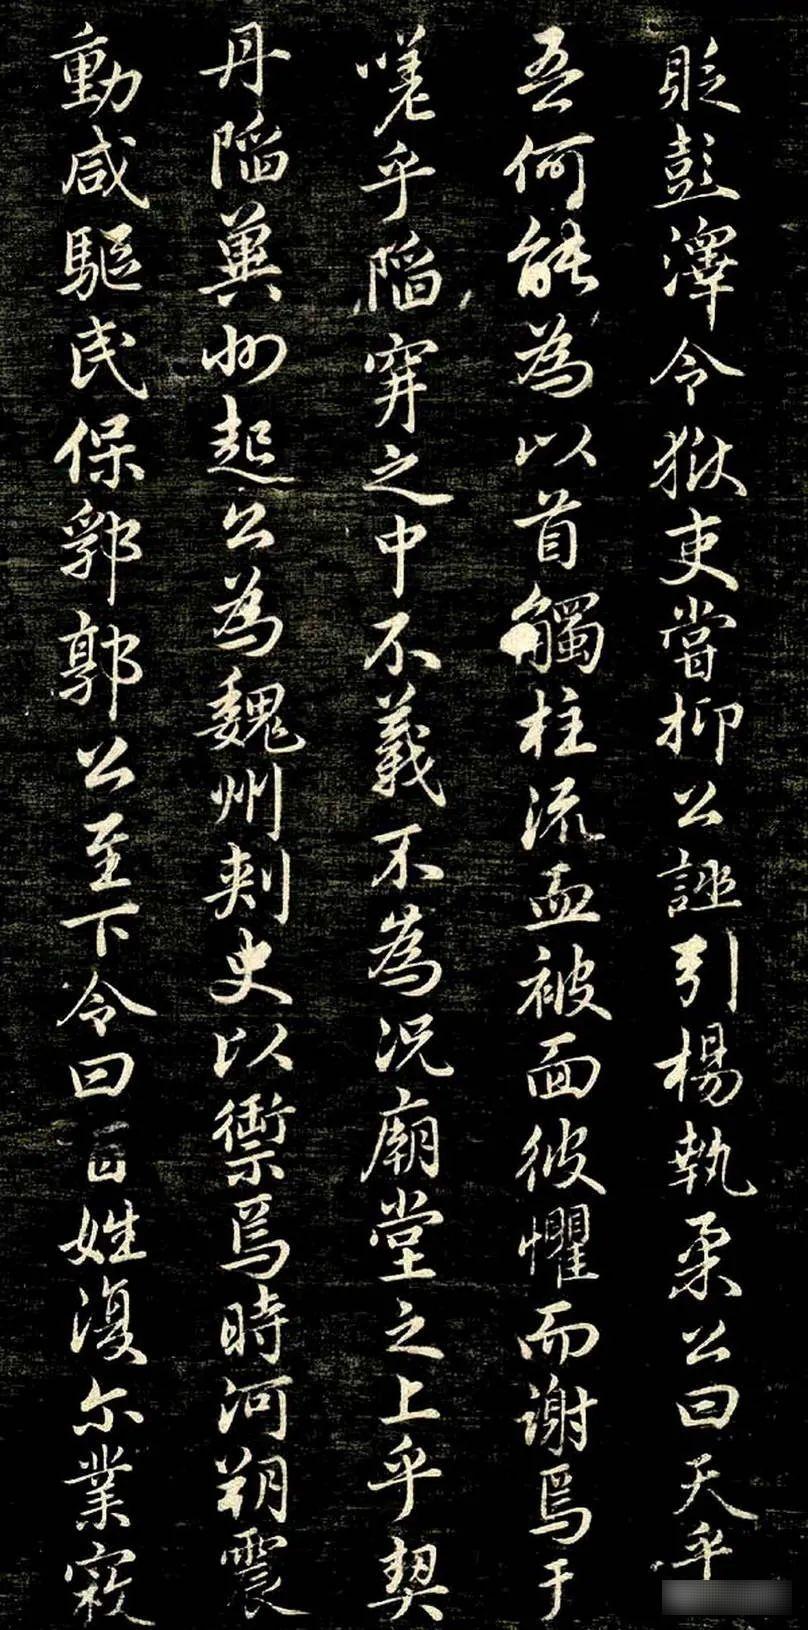 貶彭澤令獄吏嘗抑公誣引楊執柔公曰天乎
吾何能為以首觸柱流血被面彼懼而謝焉于
嗟乎陷穽之中不義不為況廟堂之上乎契
丹陷冀州起公為魏州刺史以禦焉時河朔震
動咸驅民保郛郭公至下令曰百姓復尔業寇